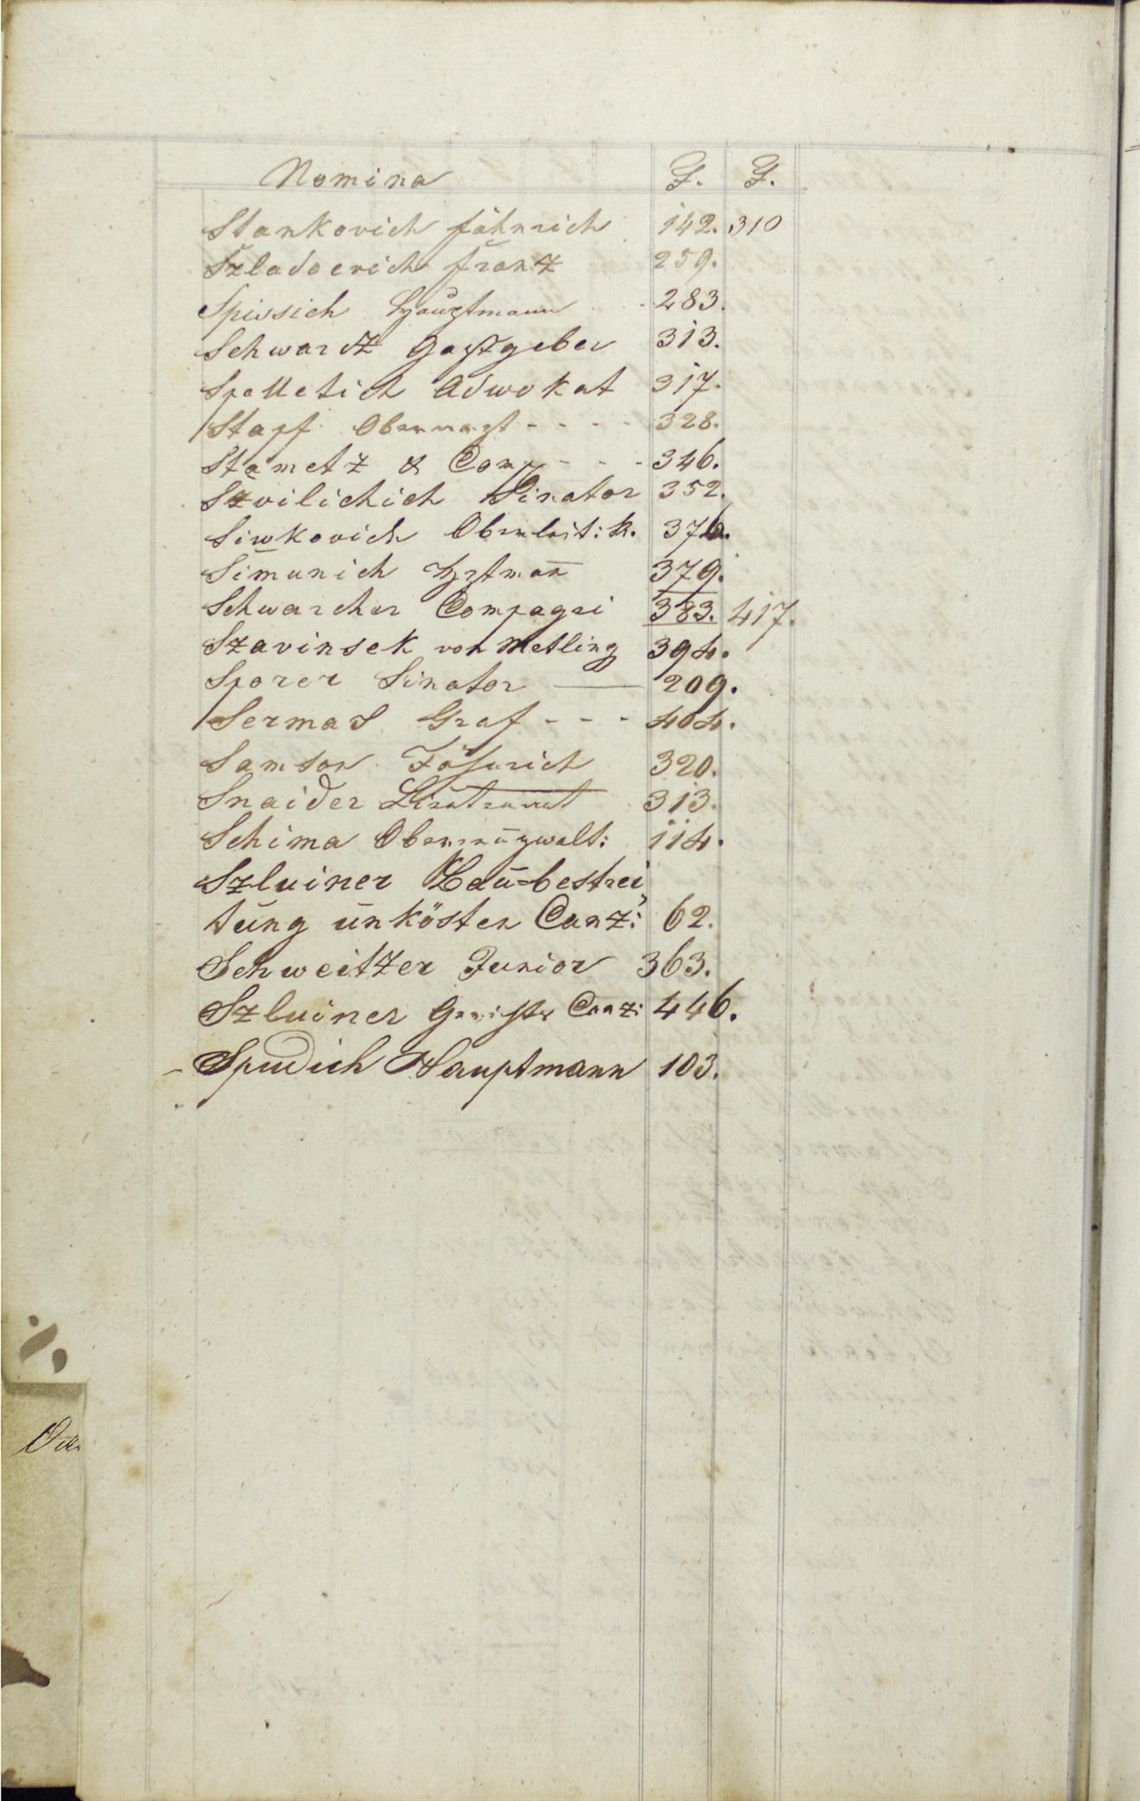 Nomina F. F.
Stankovich fähnrich 142. 310
Szladoevich Franz 259.
Spissich Hauptmann 283.
Schwardz Gastgeber 313.
Spelletich Adwokat 317.
Stapf Oberarzt - - - - 328.
Stametz & Comp - - - 346.
Szvilichich Sinator 352.
Siwkovich Oberleit: k. 376.
Simunich Hptmañ 379.
Schwarcher Compagni 383. 417.
Szavinsek von Metling 394.
Sporer Sinator — 209.
Sermas Graf - - - 404.
Samson Föhnrich 320.
Snaider Lieutenant 313.
Schima 114.
Szluiner Bau=bestrei
tung unkösten Canz: 62.
Schweitzer Junior 363.
Szluiner Canz: 446.
Spudich Hauptmann 103.